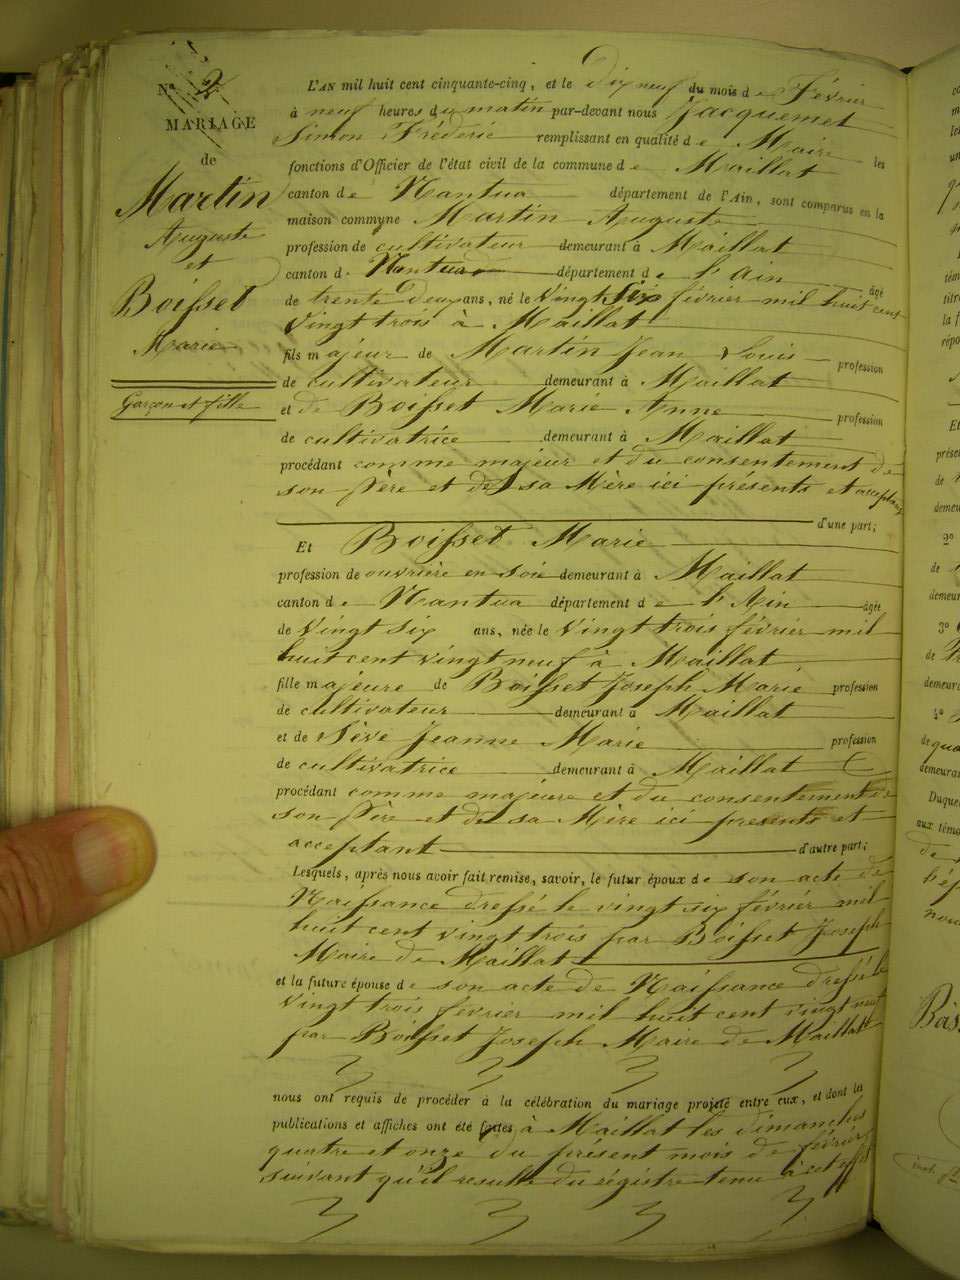 No 2
MARIAGE
de
Martin
Auguste
et
Boisset
Marie
Garçon et fille
L'AN mil huit cent cinquante-cinq, et le Dix neuf du mois de Février
à neuf heures du matin par-devant nous Jacquemet
Simon Fréderic remplissant en qualité de Maire les
fonctions d'Officier de l'état civil de la commune de Maillat
canton de Nantua département de l'Ain, sont comparus en la
maison commune Martin Auguste
profession de cultivateur demeurant à Maillat
canton de Nantua département de l'Ain âgé
de trente Deux ans, né le Vingt Six février mil huit cent
Vingt trois à Maillat
fils majeur de Martin Jean Louis profession
de cultivateur demeurant à Maillat
et de Boisset Marie Anne profession
de cultivatrice demeurant à Maillat
procédant comme majeur et du consentement de
son Père et de sa Mère ici présents et acceptans
d'une part;
Et Boisset Marie
profession de ouvrière en soie demeurant à Maillat
canton de Nantua département de l'Ain âgée
de Vingt six ans, née le Vingt trois février mil
huit cent vingt neuf à Maillat
fille majeure de Boisset Joseph Marie profession
de cultivateur demeurant à Maillat
et de Sève Jeanne Marie profession
de cultivatrice demeurant à Maillat
procédant comme majeure et du consentement de
son Père et de sa Mère ici presents et
acceptant d'autre part;
Lesquels, après nous avoir fait remise, savoir, le futur époux de son acte de
Naissance dressé le vingt six février mil
huit cent vingt trois par Boisset Joseph
Maire de Maillat
et la future épouse de son acte de Naissance dressé le
vingt trois février mil huit cent vingt neuf
par Boisset Joseph Maire de Maillat
nous ont requis de procéder à la célébration du mariage projeté entre eux, et dont les
publications et affiches ont été faites à Maillat les dimanches
quatre et onze du présent mois de février
suivant qu'il resulte du régistre tenu à cet effet